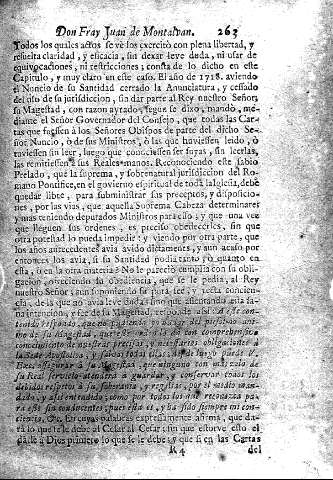 Don Fray Juan de Montalvan. 263
Todos los quales actos se vè los exercitò con plena libertad, y
resuelta claridad, y eficacia, sin dexar leve duda, ni usar de
equivocaciones, ni restricciones; consta de lo dicho en este
Capitulo, y muy claro en este caso. El año de 1718. aviendo
el Nuncio de su Santidad cerrado la Anunciatura, y cessado
del uso de su jurisdiccion, sin dar parte al Rey nuestro Señor;
su Magestad, con razon ayrado, segun se dixo, mandò, me-
diante el Señor Governador del Consejo, que todas las Car-
tas que fuessen à los Señores Obispos de parte del dicho Se-
ñor Nuncio, ò de sus Ministros, ò las que huviessen ido, ò
tuviessen sin leer, luego que conociessen ser suyas, sin leerlas,
las remitiessen à sus Reales manos. Reconociendo este sabio
Prelado, que la suprema, y sobrenatural jurisdiccion del Ro-
mano Pontifice, en el govierno espiritual de toda la Iglesia, debe
quedar libre, para subministrar sus preceptos, y disposicio-
nes, por las vias, que aquella Suprema Cabeza determinare
y mas teniendo deputados Ministros para esso; y que una vez
que lleguen sus ordenes, es preciso obedecerlas, sin que
otra potestad lo pueda impedir; y viendo por otra parte, que
los años antecedentes avia avido distamenes, y aun acaso por
entonces los avia, si su Santidad podia tanto, ò quanto en
esta, ò en la otra materia: No le pareciò cumplia con su obli-
gacion, obedeciendo la que se le pedia, al Rey
nuestro Señor; aun suponiendo su justa fee, y recta concien-
cia, de la que no avia leve duda; sino que assentando esta sa-
na intencion, y fee de su Magestad, respondió assi: A este con-
tenido respondo, que no pudiendo yo dudar del piadoso ani-
mo de su Magestad, que
conocimiento à nuestras precisas, y necessarias obligaciones à
la Sede Apostolica, y salvas todas ellas, desde luego puede V.
Exc. assegurar à su Magestad, que ninguno con mas zelo de
su fiel servicio atenderà à guardar, y conservar todos los
debidos respetos à su soberania, y regalias, por el medio man-
dado, y assi entendido; como por todos los que reconozca pa-
ra este fin conducentes; pues esta es, y ha sido siempre mi con-
ciencia, &c. En cuyas palabras expressamente afirma, que da-
rà lo que se debe al Cesar al Cesar; sin que estorve esto el
darle à Dios primero lo que se le debe; y que si en las Cartas
R 4 del